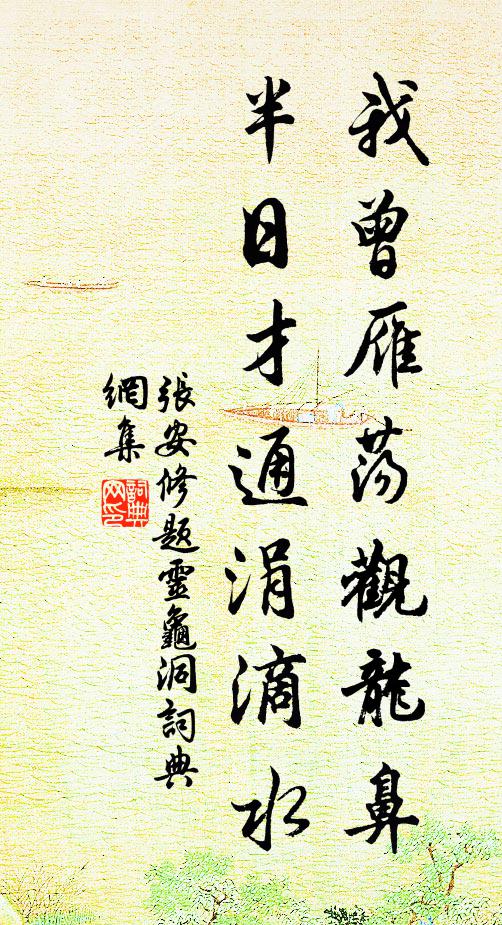 我曾雁荡觀龍鼻
半日才通涓滴水
張安修題靈龜洞詞典
網集
詞典
网印